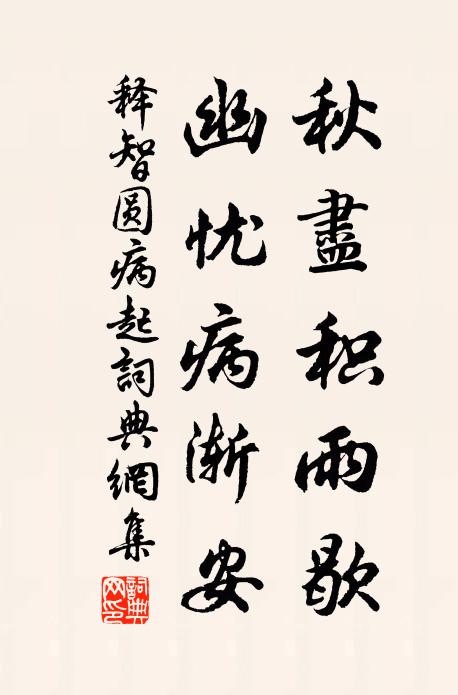 秋盡积雨歇
幽忧病渐安
释智圆病起詞典網集
詞典网印